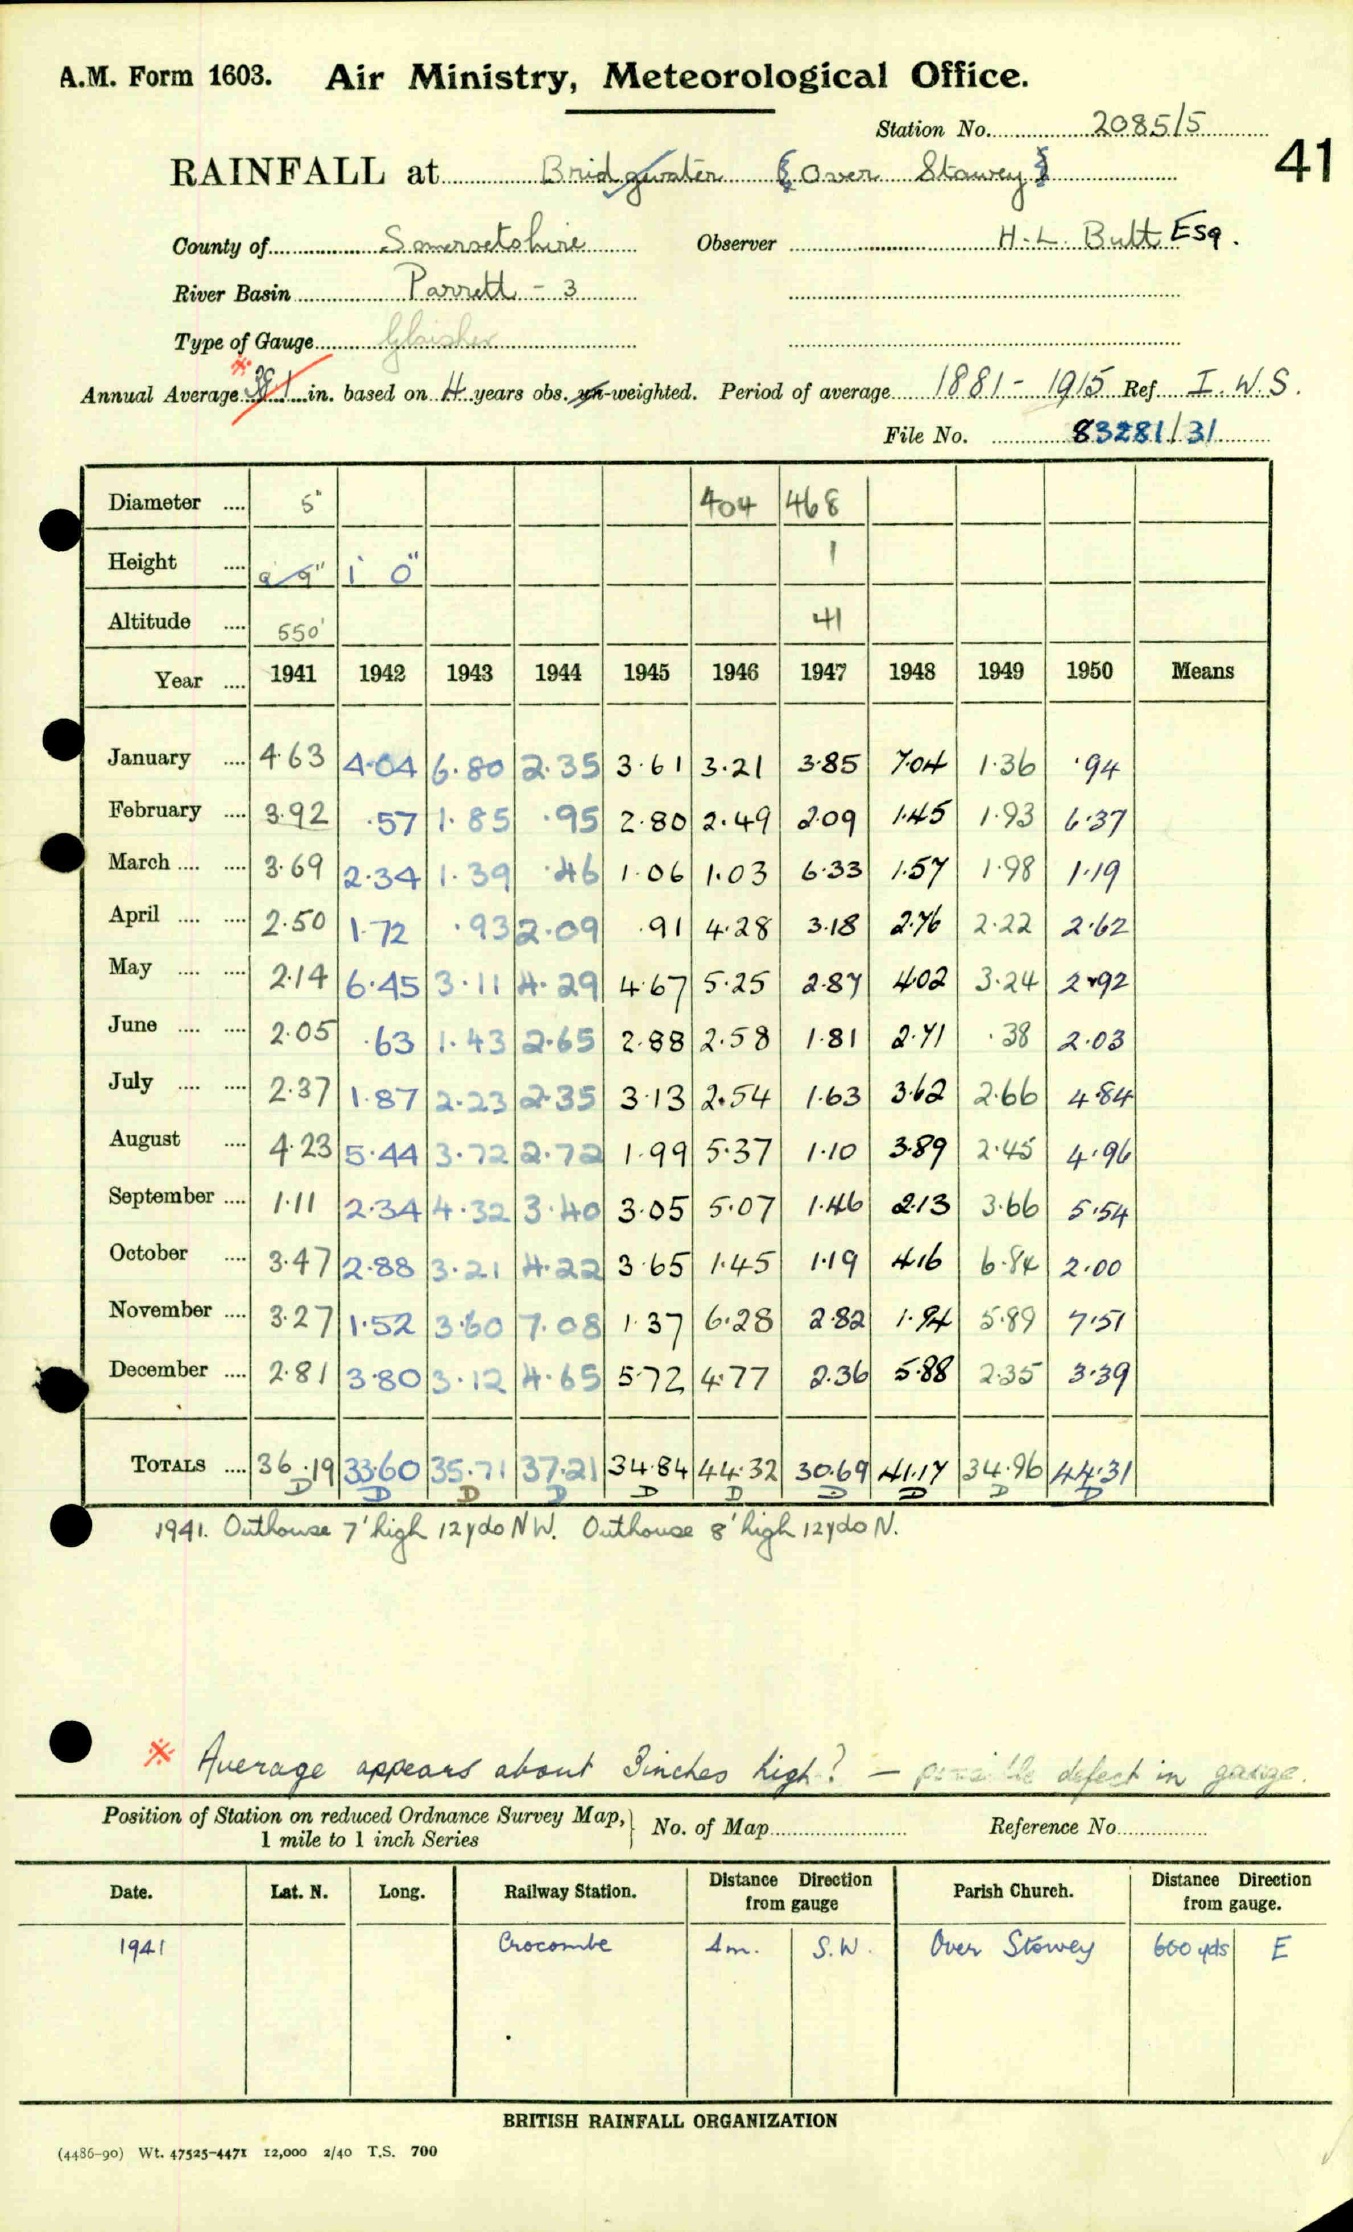 A.M. Form 1603. Air Ministry, Meteorological Office.
Station No. 2085/5
RAINFALL at Bridgwater { Over Stowey }
41
County of Somersetshire Observer H. L. Butt Esq.
River Basin Parrett - 3
Type of Gauge Glaisher
Annual Average in. based on 4 years obs. un-weighted. Period of average 1881 - 1915 Ref I. W. S.
File No. 83281/31
Diameter .... 5" 404 468
Height .... 0' 9" 1' 0" 1
Altitude .... 550' 41
Year .... 1941 1942 1943 1944 1945 1946 1947 1948 1949 1950 Means
January .... 4.63 4.04 6.80 2.35 3.61 3.21 3.85 7.04 1.36 .94
February .... 3.92 .57 1.85 .95 2.80 2.49 2.09 1.45 1.93 6.37
March .... .... 3.69 2.34 1.39 .46 1.06 1.03 6.33 1.57 1.98 1.19
April .... .... 2.50 1.72 .93 2.09 .91 4.28 3.18 2.76 2.22 2.62
May .... .... 2.14 6.45 3.11 4.29 4.67 5.25 2.87 4.02 3.24 2.92
June .... .... 2.05 .63 1.43 2.65 2.88 2.58 1.81 2.71 .38 2.03
July .... .... 2.37 1.87 2.23 2.35 3.13 2.54 1.63 3.62 2.66 4.84
August .... 4.23 5.44 3.72 2.72 1.99 5.37 1.10 3.89 2.45 4.96
September .... 1.11 2.34 4.32 3.40 3.05 5.07 1.46 2.13 3.66 5.54
October .... 3.47 2.88 3.21 4.22 3.65 1.45 1.19 4.16 6.84 2.00
November .... 3.27 1.52 3.60 7.08 1.37 6.28 2.82 1.94 5.89 7.51
December .... 2.81 3.80 3.12 4.65 5.72 4.77 2.36 5.88 2.35 3.39
TOTALS .... 36.19 33.60 35.71 37.21 34.84 44.32 30.69 41.17 34.96 44.31
D D D D D D D D D D
1941. Outhouse 7' high 12 yds NW. Outhouse 8' high 12 yds N.
※ Average appears about 3 inches high? — possible defect in gauge.
Position of Station on reduced Ordnance Survey Map, } No. of Map Reference No
1 mile to 1 inch Series
Date. Lat. N. Long. Railway Station. Distance Direction from gauge Parish Church. Distance Direction from gauge.
1941 Crocombe 4m. S.W. Over Stowey 600 yds E
BRITISH RAINFALL ORGANIZATION
(4486-90) Wt. 47525-4471 12,000 2/40 T.S. 700